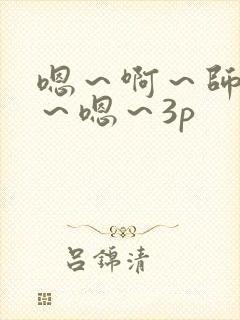 嗯～啊～師
～嗯～3p
吕錦清